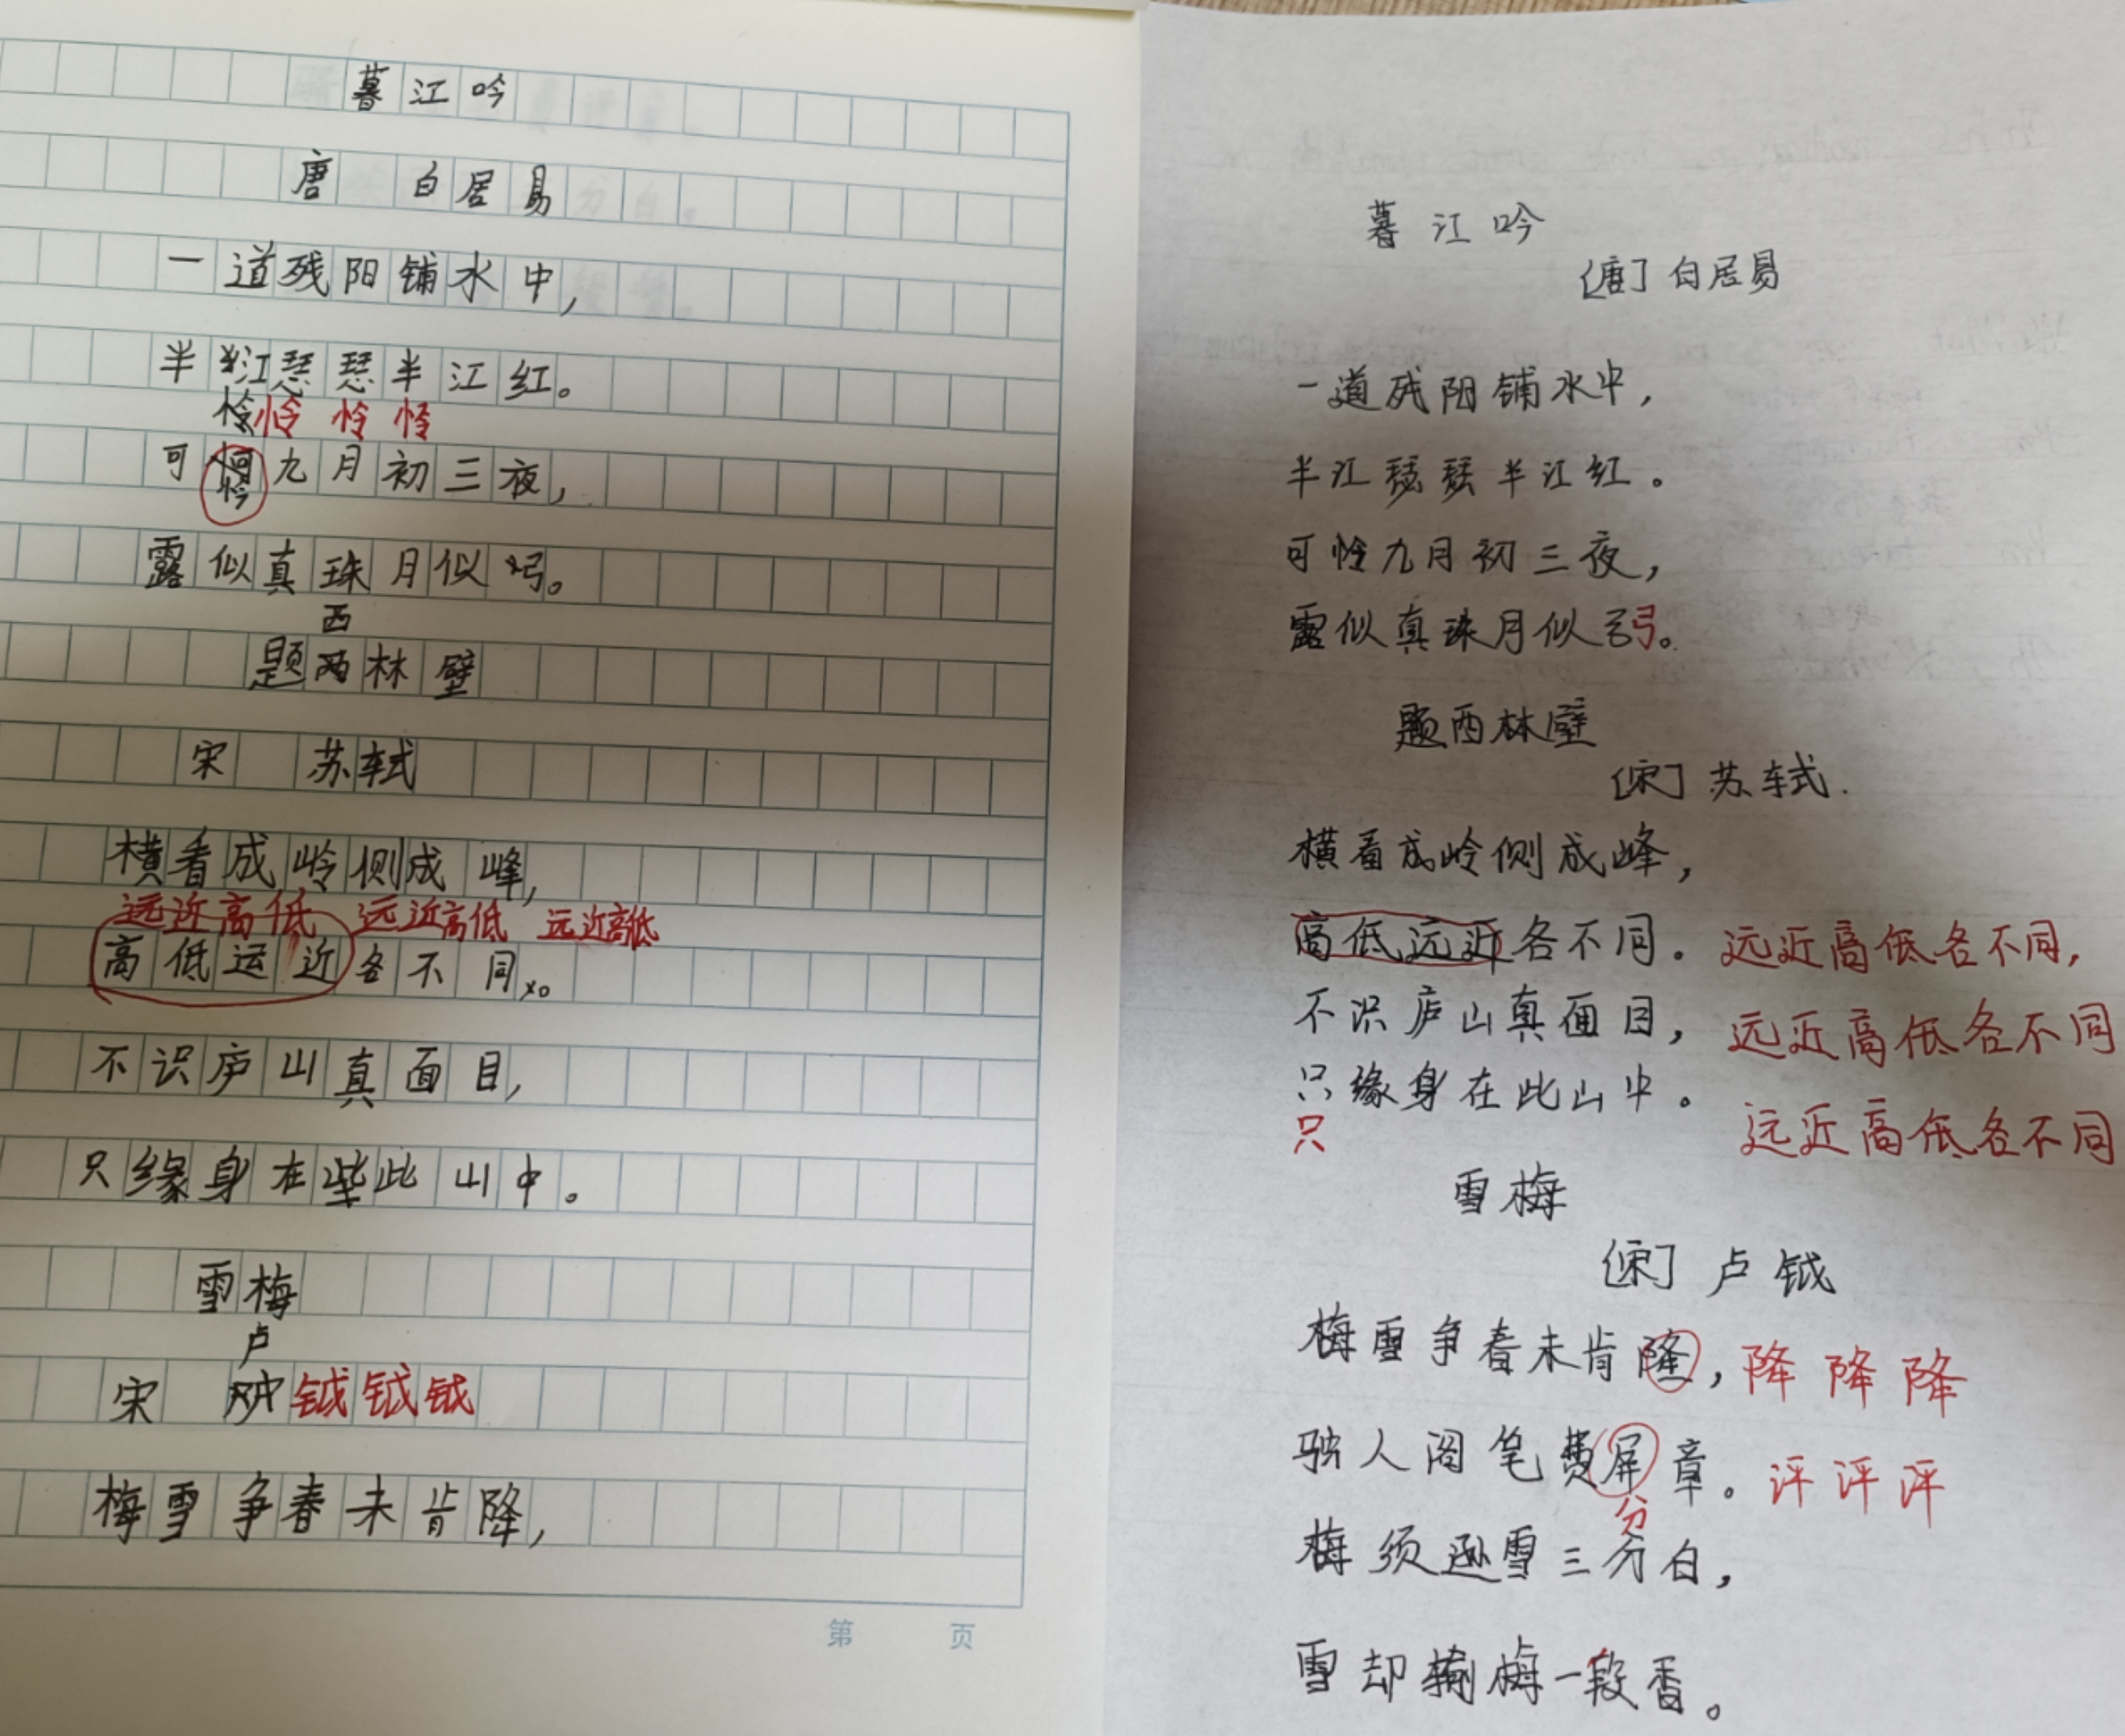 暮江吟
唐 白居易
一道残阳铺水中，
半江瑟瑟半江红。
怜怜怜怜
可怜九月初三夜，
露似真珠月似弓。
西
题西林壁
宋 苏轼
横看成岭侧成峰，
远近高低 远近高低 远近高低
高低运近各不同。
不识庐山真面目，
只缘身在此山中。
雪梅
卢
宋 钺钺钺
梅雪争春未肯降，
第 页
暮江吟
[唐] 白居易
一道残阳铺水中，
半江瑟瑟半江红。
可怜九月初三夜，
露似真珠月似弓。
题西林壁
[宋] 苏轼.
横看成岭侧成峰，
高低远近各不同。远近高低各不同，
不识庐山真面目，远近高低各不同
只缘身在此山中。
只 远近高低各不同
雪梅
[宋] 卢钺
梅雪争春未肯隆，降降降
人阁笔费屏章。评评评
分
梅须逊雪三分白，
雪却输梅一段香。